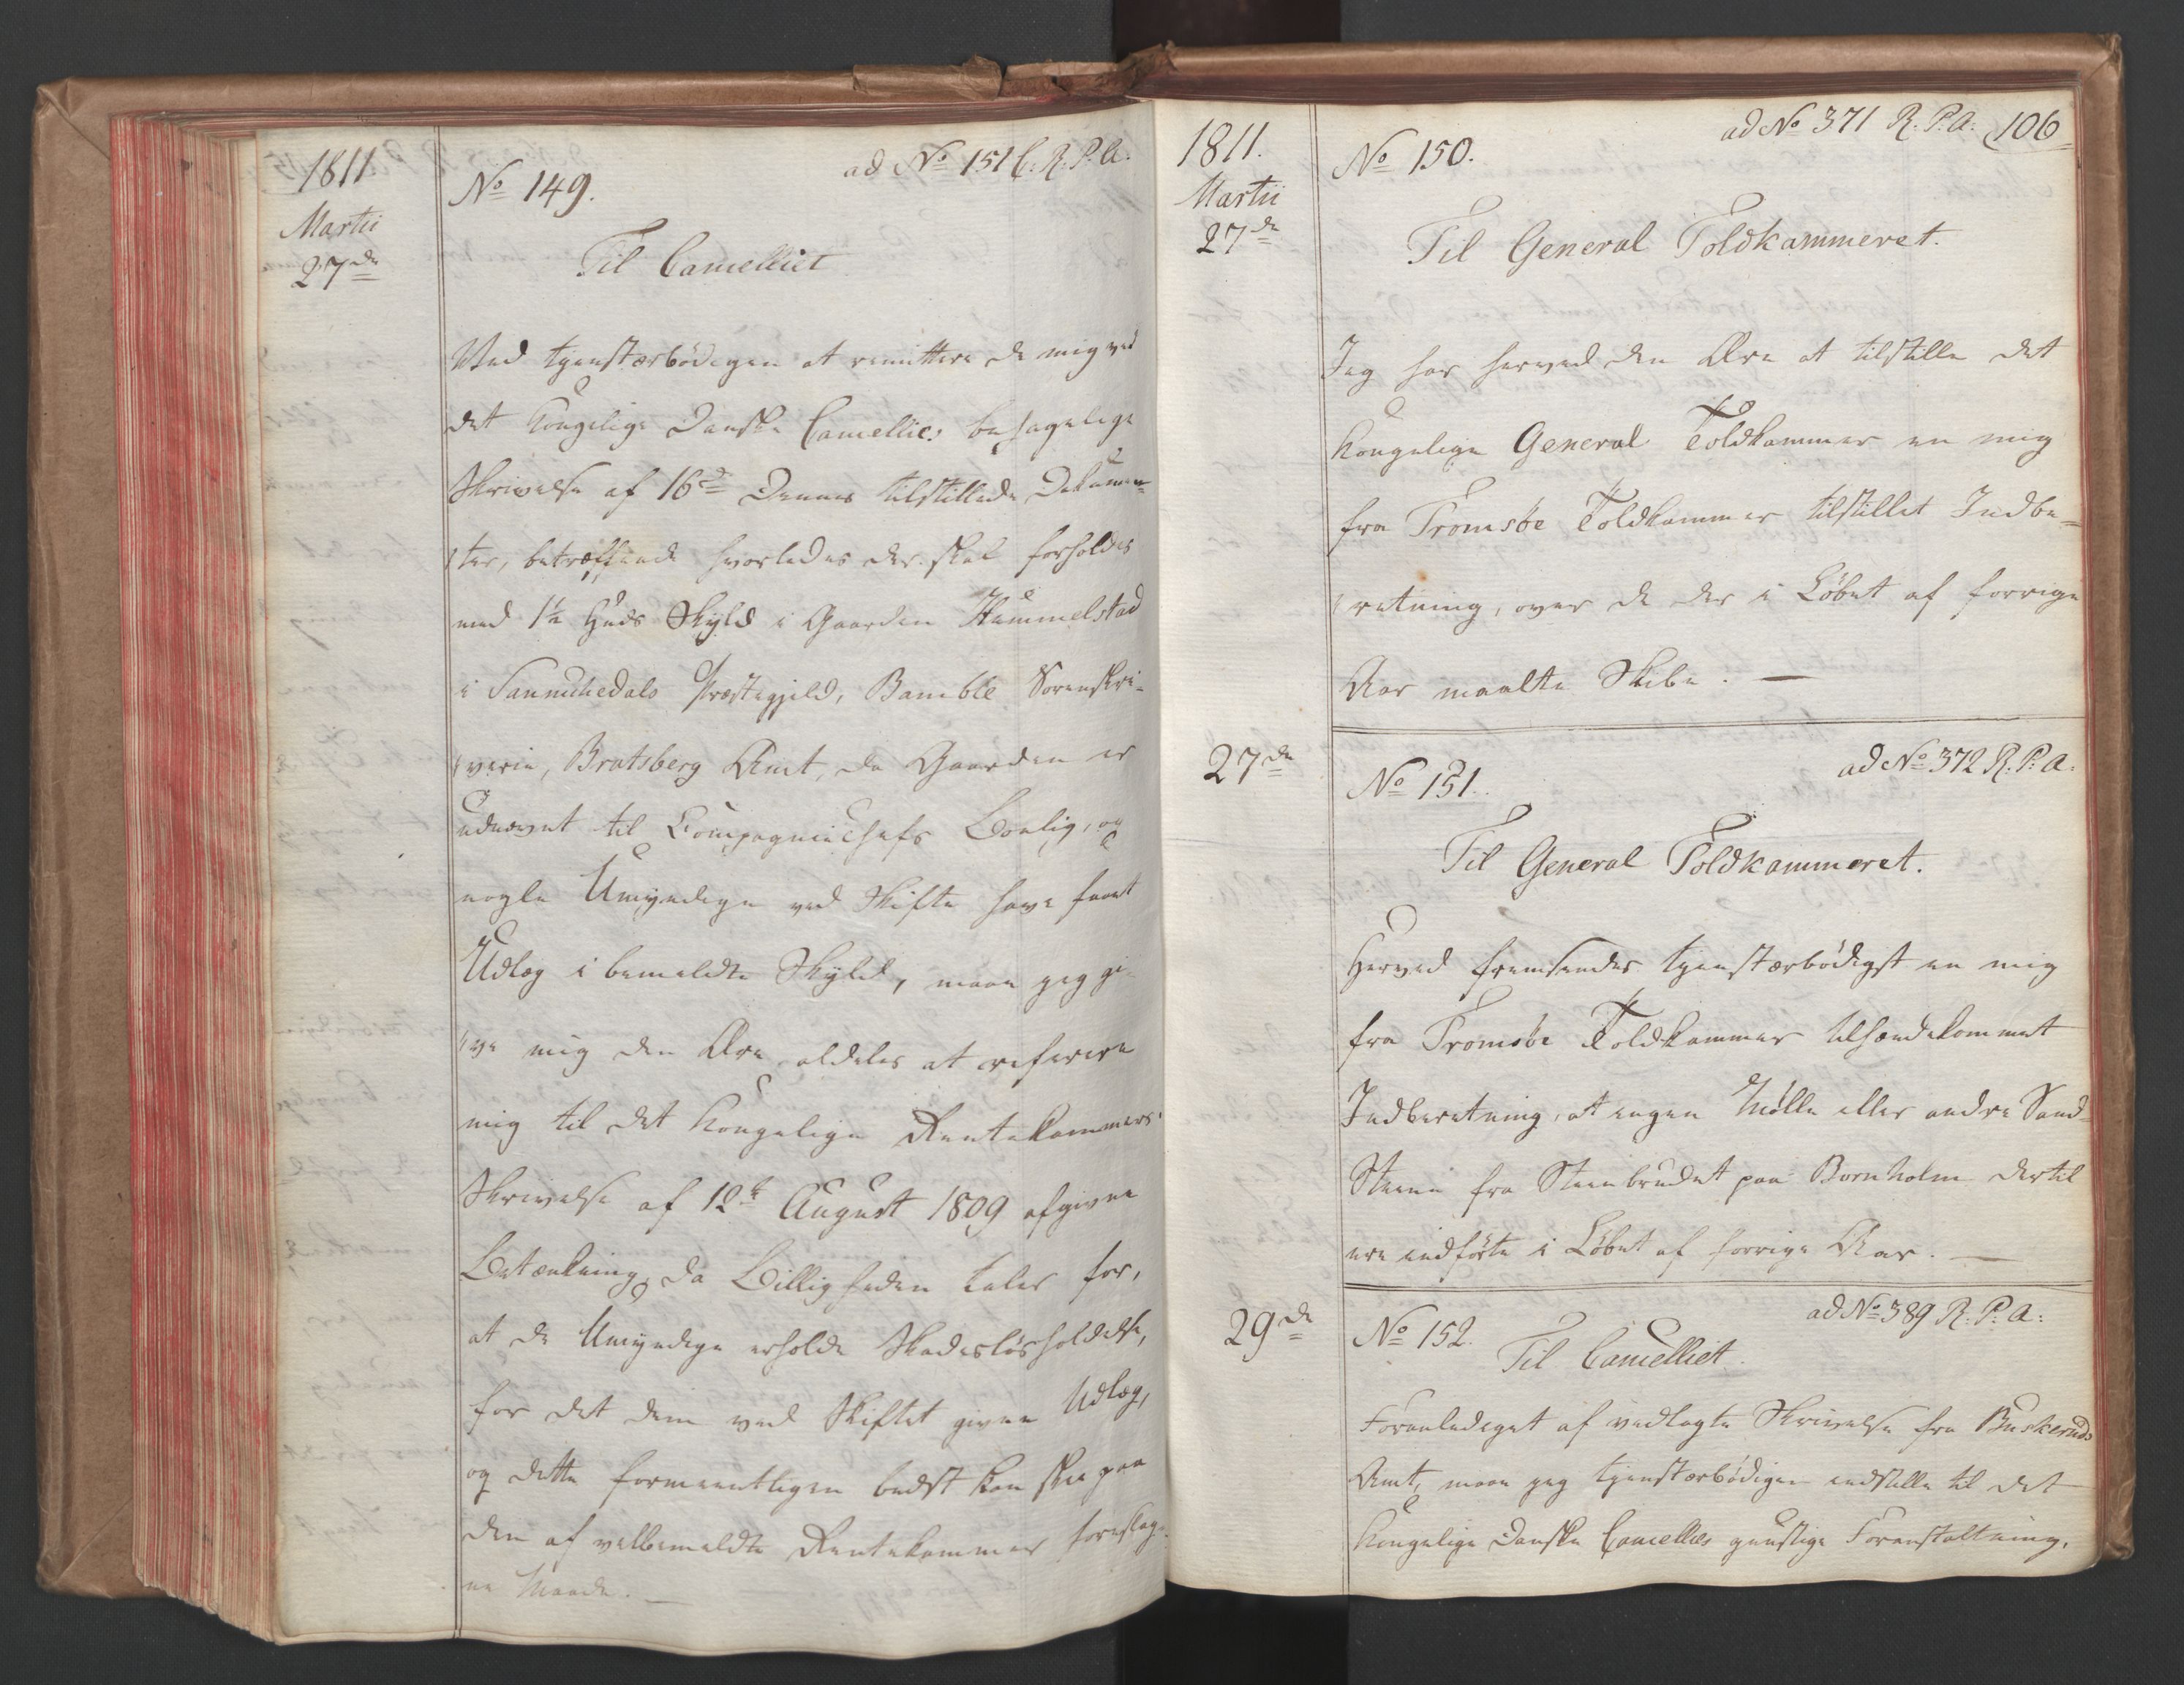 1811.
Martii
27de
No 149.
ad No 151 C. R. P. A.
Til Cancelliet
Med tjenstærbødigen at remittere de mig ved
det Kongelige Danske Cancellies behagelige
Skrivelse af 16de Dennes tilstillede Dokumen-
ter, betræffende hvorledes der skal forholdes
med 1½ Huds Skyld i Gaarden Hummelstad
i Sannikedals Præstegjeld, Bamble Sorenskri-
verie, Bratsberg Amt, da Gaarden er
udnævnt til Compagniechefs Boelig, og
nogle Umyndige ved Skifte have faaet
Udlæg i bemeldte Skyld, maae jeg gi-
ve mig den Ære aldeles at referere
mig til det Kongelige Rentekammers
Skrivelse af 12te August 1809 afgivne
Betænkning, da Billigheden taler for,
at de Umyndige erholde Skadesløsholdelse,
for det dem ved Skiftet givne Udlæg,
og dette formeentligen bedst kan skee paa
den af velbemeldte Rentekammer foreslag-
ne Maade. —
1811.
Martii
27de
No 150.
ad No 371 R. P. A. 106
Til General Toldkammeret.
Jeg har herved den Ære at tilstille det
Kongelige General Toldkammer en mig
fra Tromsøe Toldkammer tilstillet Indbe-
retning, over de der i Løbet af forrige
Aar maalte Skibe. —
27de
No 151.
ad No 372 R. P. A.
Til General Toldkammeret.
Herved fremsendes tjenstærbødigst en mig
fra Tromsøe Toldkammer tilhændekommet
Indberetning, at ingen Mølle eller andre Sand-
Stene fra Steenbrudet paa Bornholm dertil
ere indførte i Løbet af forrige Aar. —
29de
No 152.
ad No 389 R. P. A.
Til Cancelliet.
Foranlediget af vedlagte Skrivelse fra Buskeruds
Amt, maae jeg tjenstærbødigen indstille til det
Kongelige Danske Cancellies gunstige Foranstaltning,